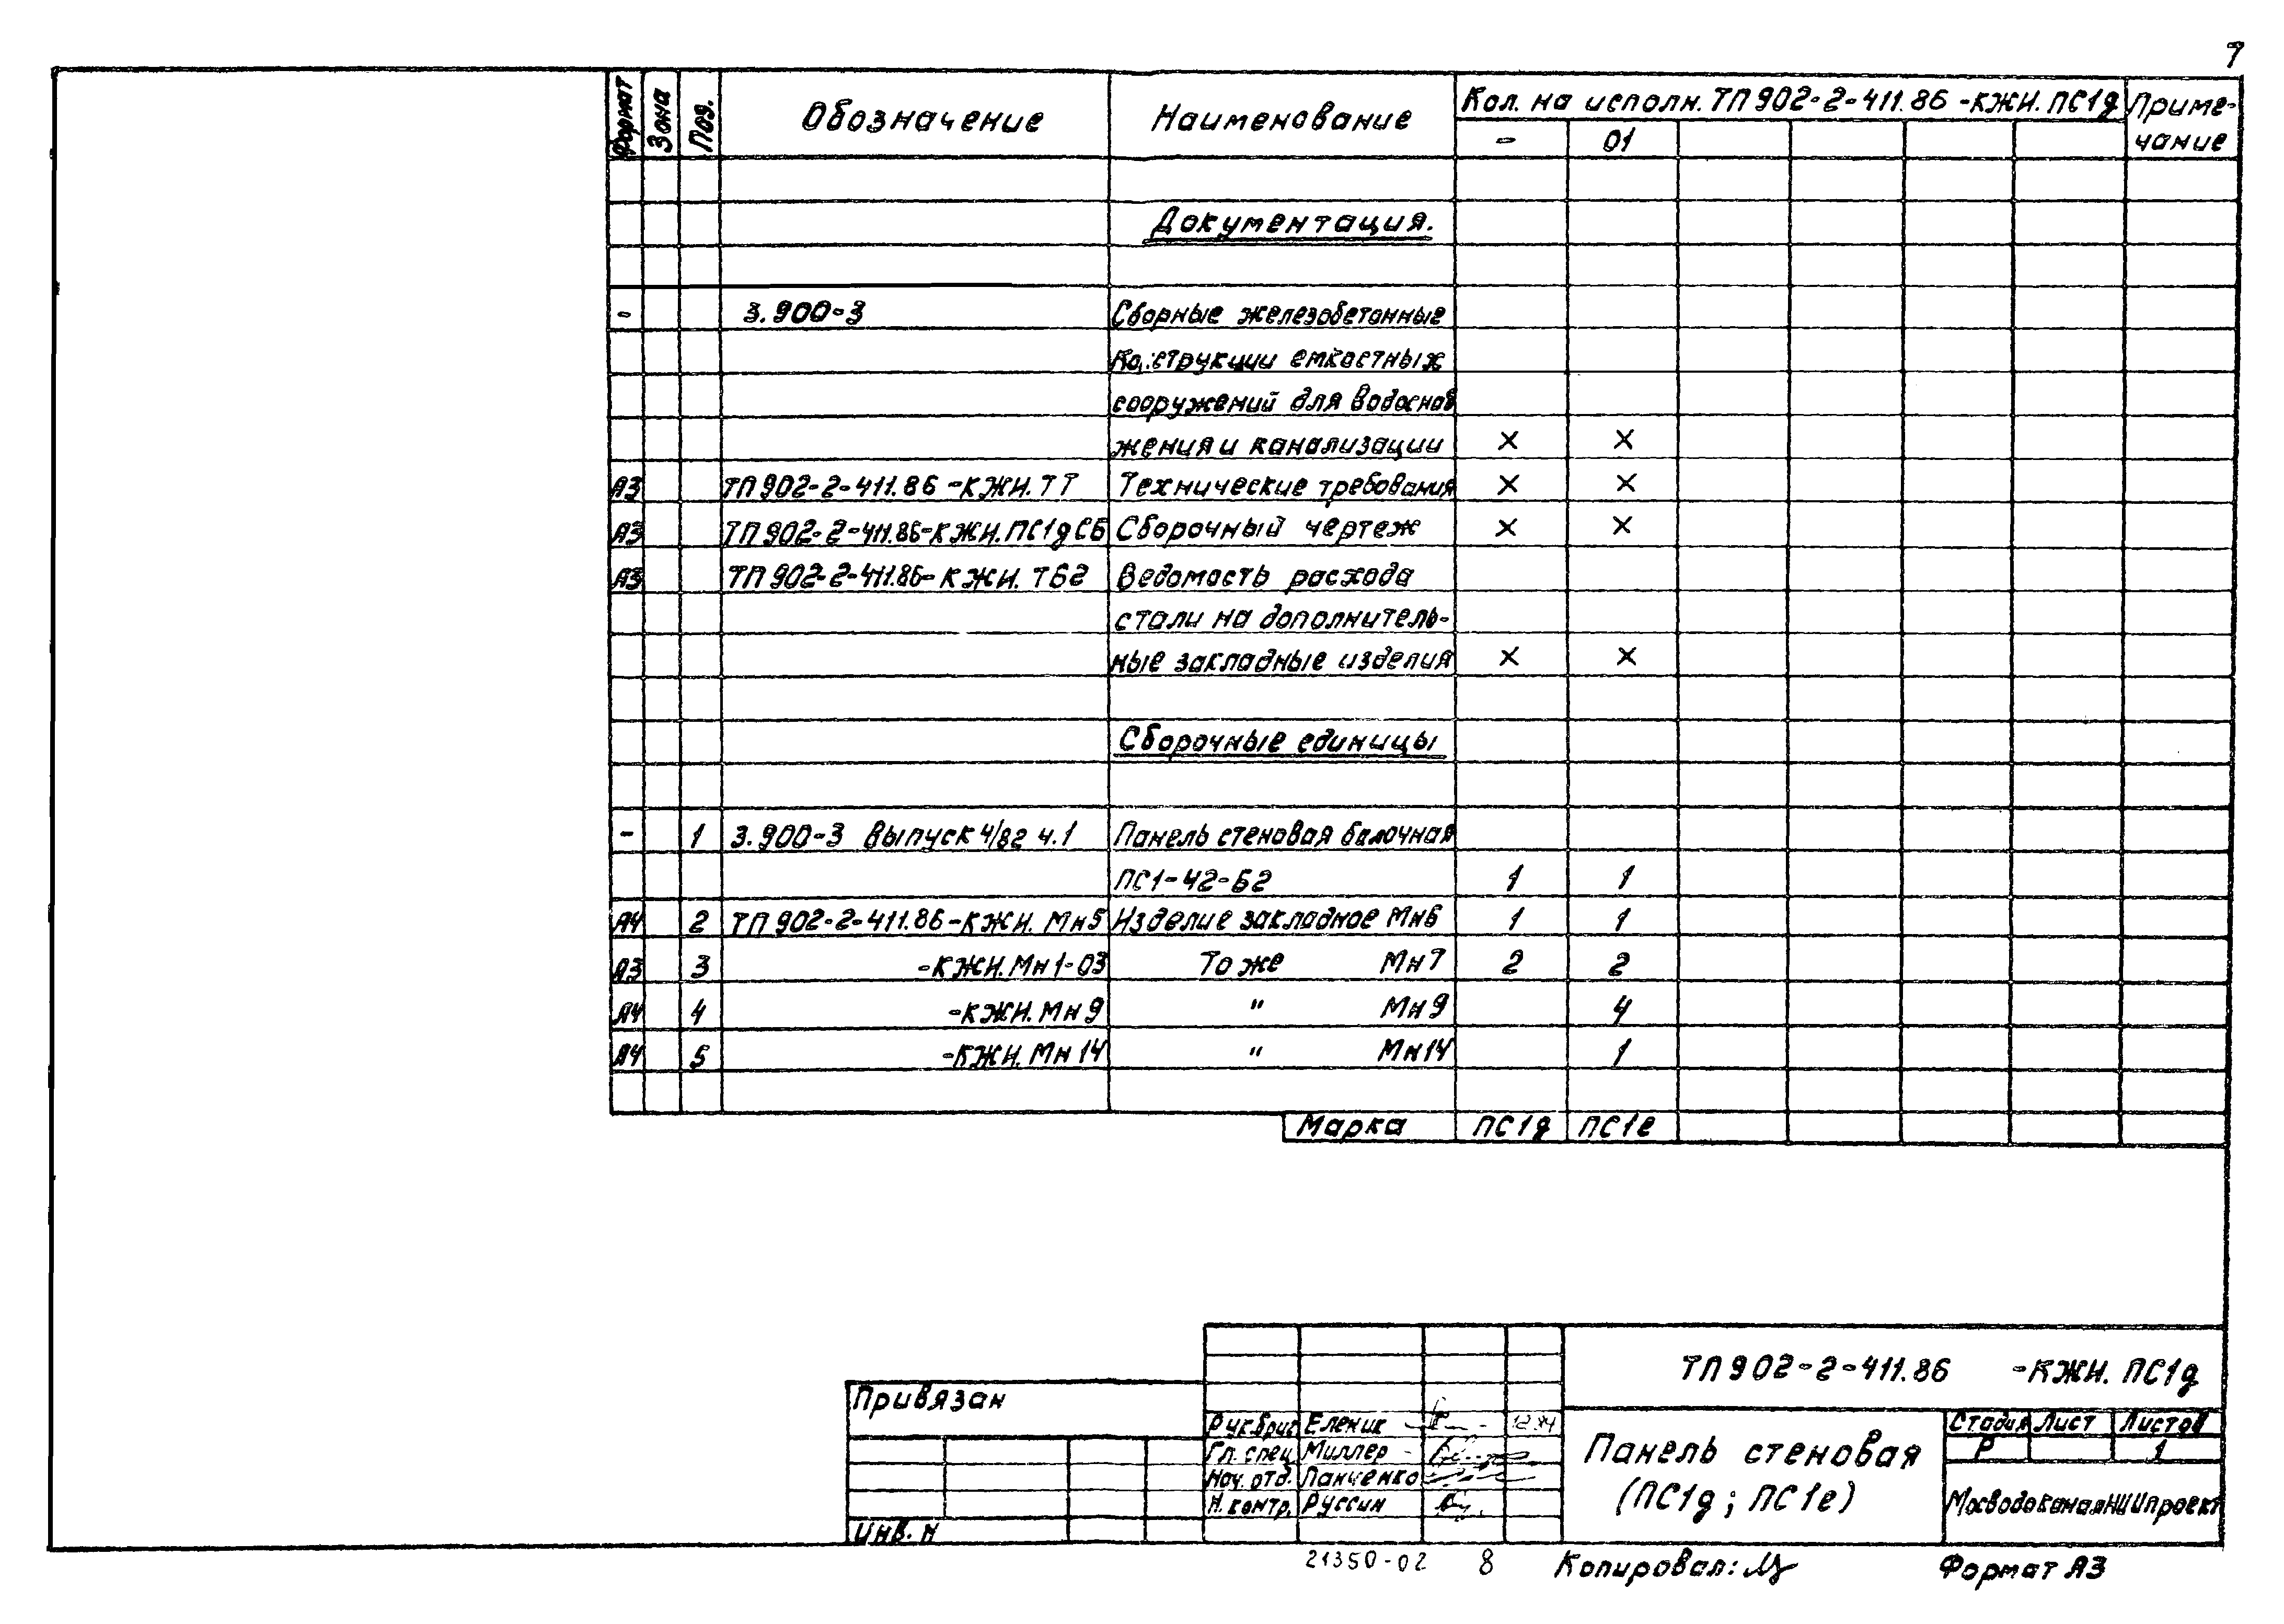 7
Формат Зона Поз. Обозначение Наименование Кол. на исполн. ТП902-2-411.86 -КЖИ. ПС1д Приме-
- 01 чание
Документация.
- 3.900-3 Сборные железобетонные
конструкции емкостных
сооружений для водоснаб
жения и канализации × ×
А3 ТП902-2-411.86 -КЖИ. ТТ Технические требования × ×
А3 ТП902-2-411.86-КЖИ.ПС1дСБ Сборочный чертеж × ×
А3 ТП902-2-411.86-КЖИ. ТБ2 Ведомость расхода
стали на дополнитель-
ные закладные изделия × ×
Сборочные единицы
- 1 3.900-3 Выпуск 4/82 ч.1 Панель стеновая балочная
ПС1-42-Б2 1 1
А4 2 ТП902-2-411.86-КЖИ. Мн5 Изделие закладное Мн6 1 1
А3 3 -КЖИ.Мн1-03 То же Мн7 2 2
А4 4 -КЖИ.Мн9 " Мн9 4
А4 5 -КЖИ.Мн14 " Мн14 1
Марка ПС1д ПС1е
ТП902-2-411.86 -КЖИ. ПС1д
Привязан
Рук.бриг Еленик 12.84
Гл. спец Миллер
Нач. отд. Панченко
Н. контр. Руссин
Инв. N
Панель стеновая
(ПС1д; ПС1е)
Стадия Лист Листов
Р 1
МосводоканалНИИпроект
21350-02 8 Копировал: Формат А3